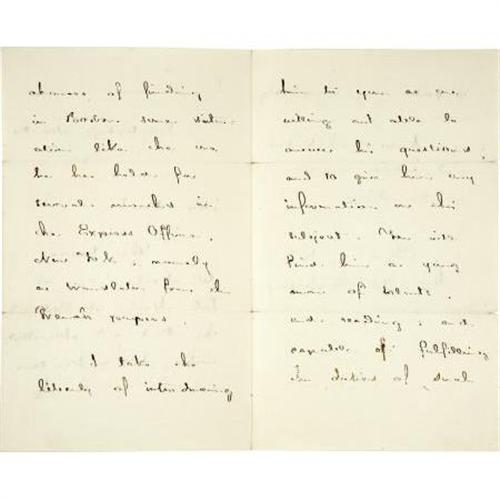 chances of finding
in London some situ-
ation like the one
he has held for
several months in
the Express Office,
New York, namely
as translator from the
French papers.
I take the
liberty of introducing
him to you as you
willing and able to
answer his questions
and to give him any
information on this
subject. You will
find him a young
man of talents,
and reading, and
capable of fulfilling
the duties of such